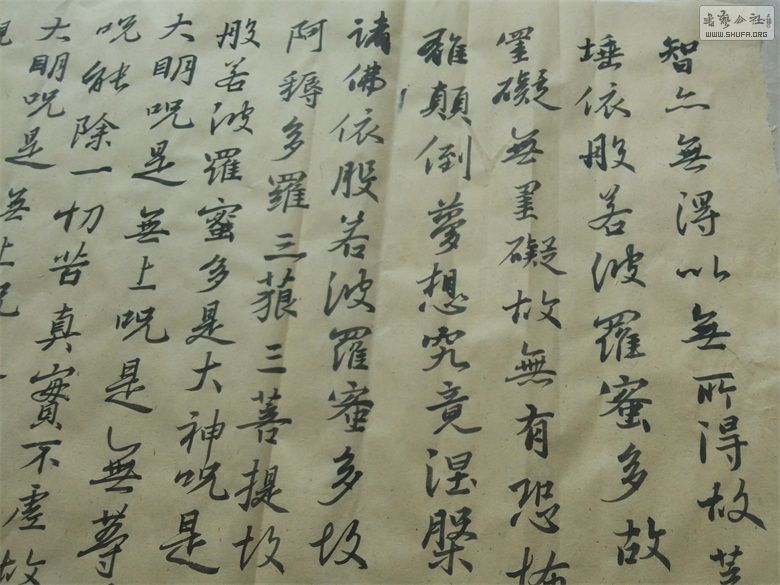 智亦無得以無所得故菩
埵依般若波羅蜜多故
罣礙無罣礙故無有恐怖
離顛倒夢想究竟涅槃
諸佛依般若波羅蜜多故
阿耨多羅三藐三菩提故
般若波羅蜜多是大神呪是
大明呪是無上呪是無等
呪能除一切苦真實不虛故
大明呪是無上呪
书艺公社
WWW.SHUFA.ORG